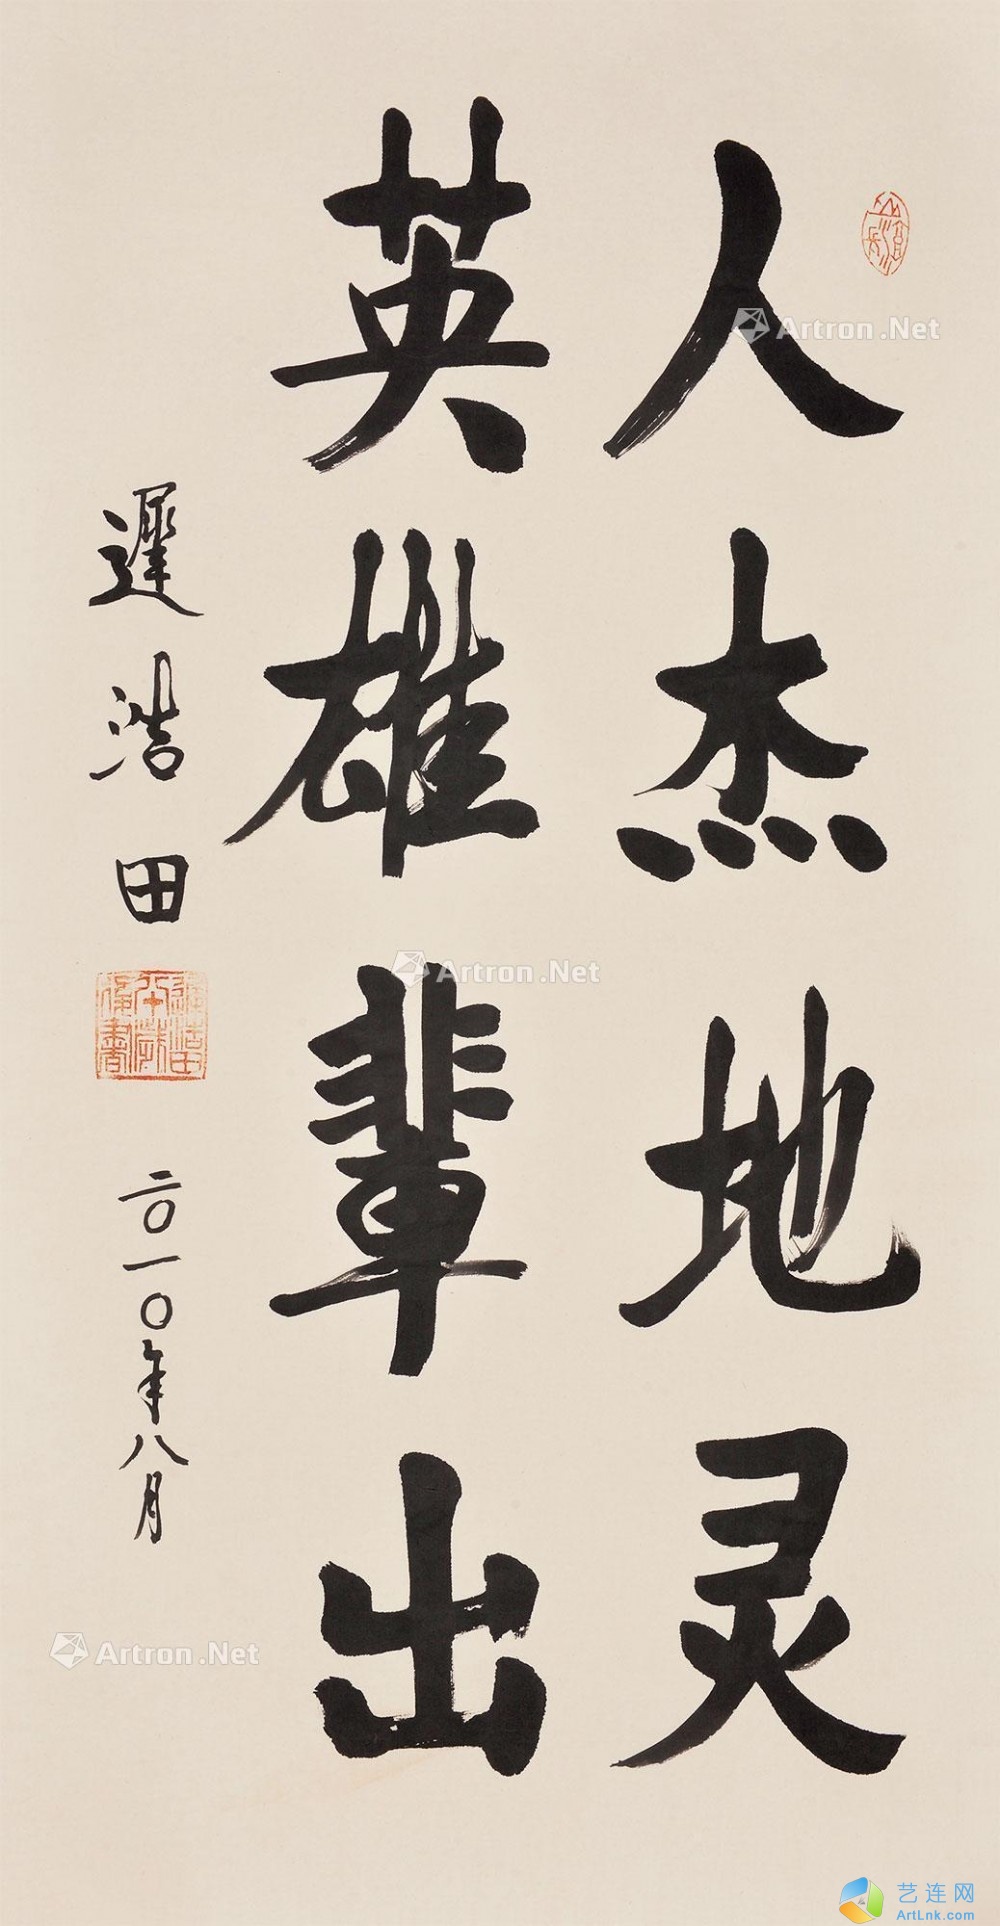 人杰地灵
英雄辈出
遲浩田
二〇一〇年八月
Artron.Net
Artron.Net
Artron.Net
艺连网
ArtLnk.com